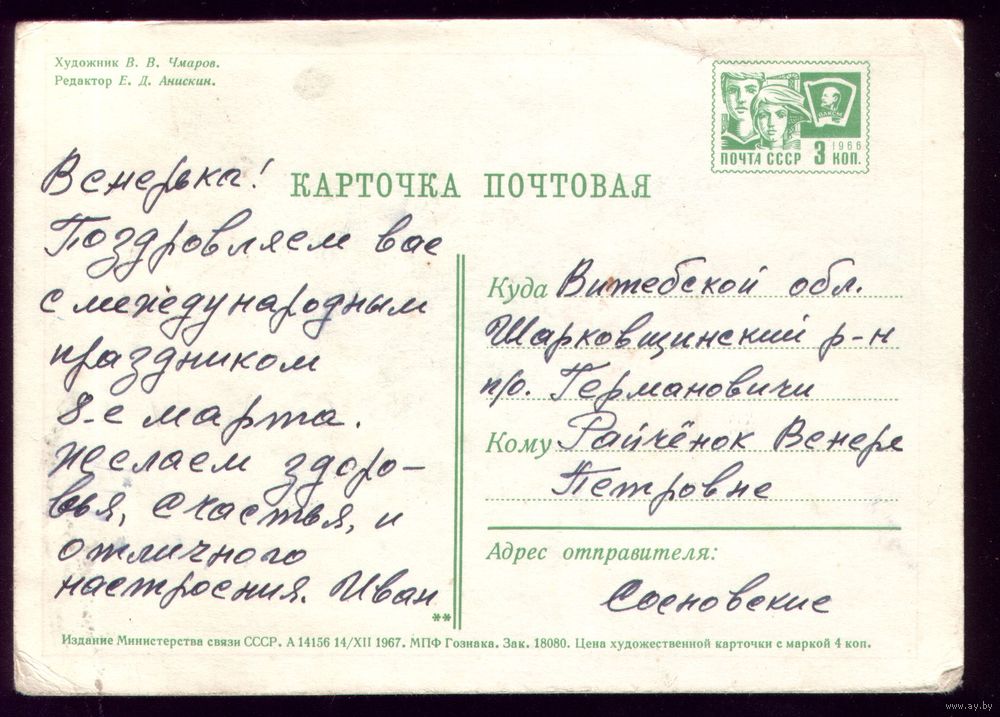 Художник В. В. Чмаров.
Редактор Е. Д. Анискин.
ВЛКСМ
1966
ПОЧТА СССР 3 КОП.
КАРТОЧКА ПОЧТОВАЯ
Венерька!
Поздровляем вас
с международным
праздником
8-е марта.
Желаем здоро-
вья, счастья, и
отличного
настроения. Иван
**
Куда Витебской обл.
Шарковщинский р-н
п/о. Германовичи
Кому Райчёнок Венере
Петровне
Адрес отправителя:
Сосновские
Издание Министерства связи СССР. А 14156 14/XII 1967. МПФ Гознака. Зак. 18080. Цена художественной карточки с маркой 4 коп.
www.ay.by